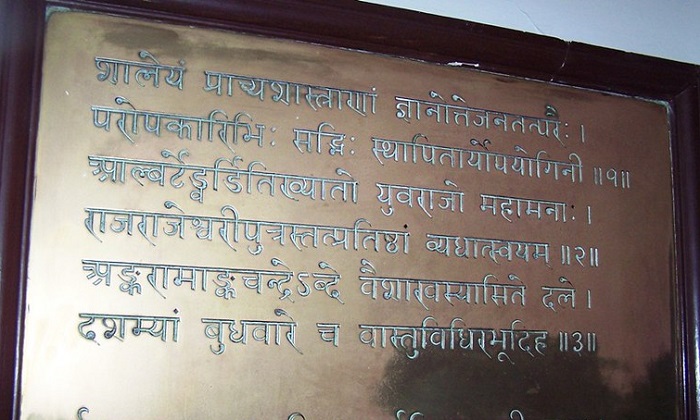 शालेयं प्राच्यशास्त्राणां ज्ञानोत्तेजनतत्परैः ।
परोपकारिभिः सद्भिः स्थापितार्योपयोगिनी ॥१॥
आल्बर्टेड्वर्डितिख्यातो युवराजो महामनाः ।
राजराजेश्वरीपुत्रस्तत्प्रतिष्ठां व्यधात्स्वयम् ॥२॥
अङ्करामाङ्कचन्द्रेऽब्दे वैशाखस्यासिते दले ।
दशम्यां बुधवारे च वास्तुविधिरभूदिह ॥३॥